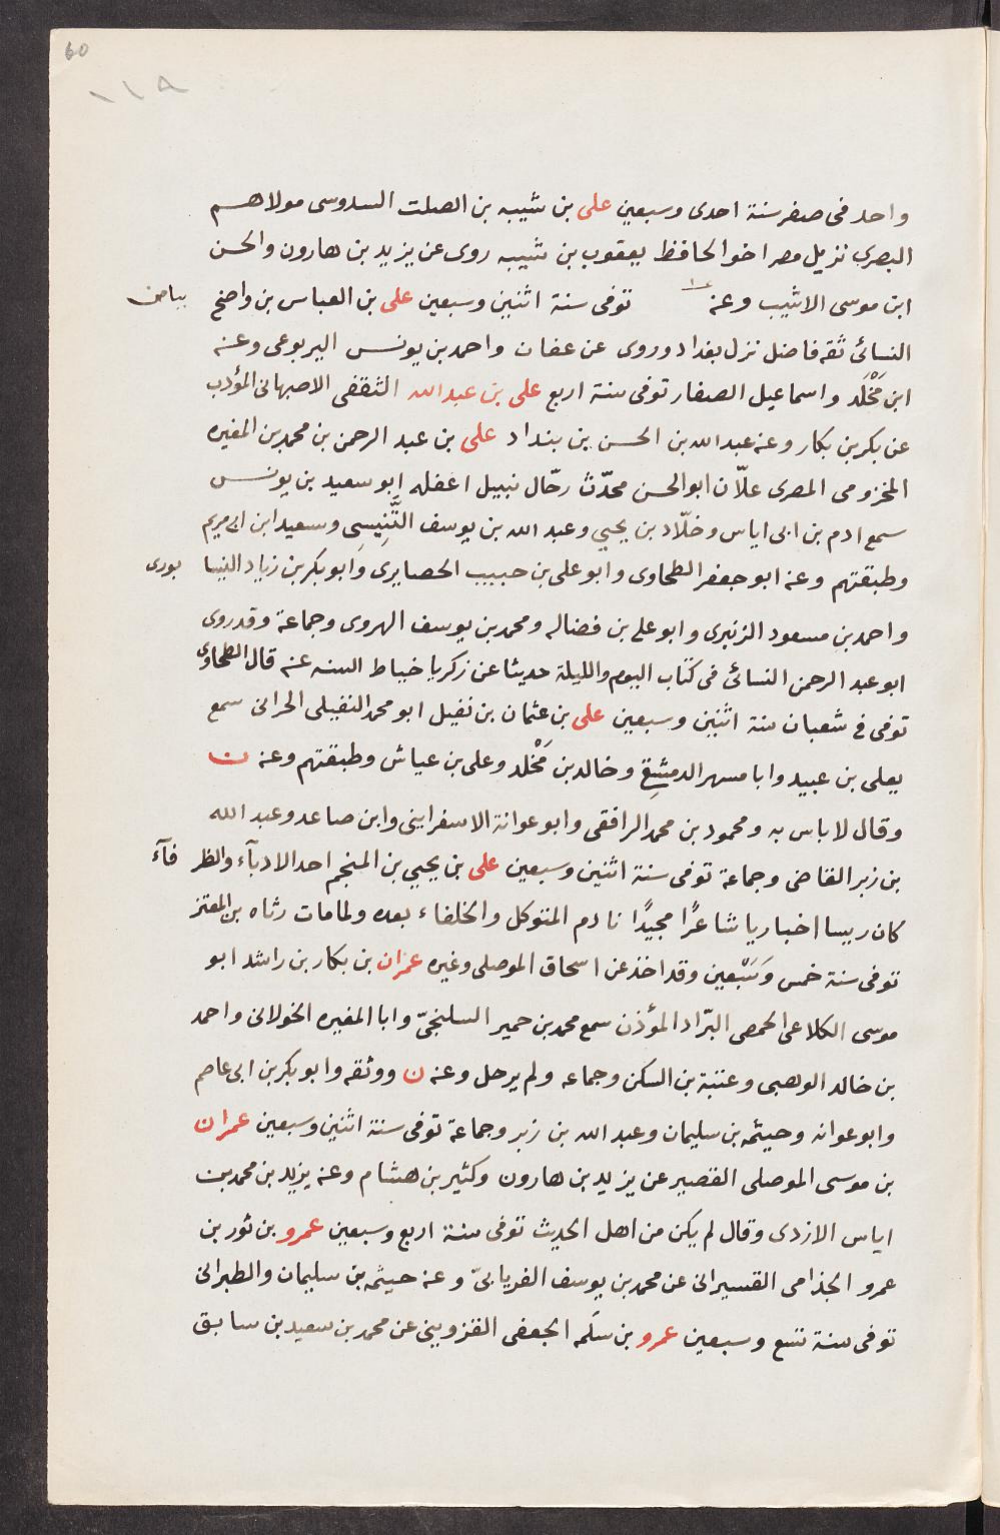 60
١١٨
واحد فى صفر سنة احدى وسبعين على بن شيبه بن الصلت السدوسى مولاهم
البصرى نزيل مصر اخو الحافظ يعقوب بن شيبه روى عن يزيد بن هارون والحسن
ابن موسى الاشيب وعنه توفى سنة اثنين وسبعين على بن العباس بن واضح بياض
النسائى ثقه فاضل نزل بغداد وروى عن عفان واحمد بن يونس اليربوعى وعنه
ابن مَخْلَد واسماعيل الصفار توفى سنة اربع على بن عبد الله الثقفى الاصبهانى المؤدب
عن بكر بن بكار وعنه عبد الله بن الحسن بن بنداد على بن عبد الرحمن بن محمد بن المغيره
المخزومى المصرى علّان ابو الحسن محدّث رحّال نبيل اغفله ابو سعيد بن يونس
سمع ادم بن ابى اياس وخلّاد بن يحيي وعبد الله بن يوسف التَّنِيسِى وسعيد ابن ابى مريم
وطبقتهم وعنه ابو جعفر الطحاوى وابو على بن حبيب الحصايرى وابو بكر بن زياد النيسا بورى
واحمد بن مسعود الزنبرى وابو على بن فضاله ومحمد بن يوسف الهروى وجماعة وقد روى
ابو عبد الرحمن النسائى فى كتاب اليوم والليلة حديثا عن زكريا خياط السنه عنه قال الطحاوى
توفى فى شعبان سنة اثنين وسبعين على بن عثمان بن نفيل ابو محمد النفيلى الحرانى سمع
يعلى بن عبيد وابا مسهر الدمشقِى وخالد بن مَخْلد وعلى بن عياش وطبقتهم وعنه ن
وقال لا باس به ومحمود بن محمد الرافقى وابو عوانة الاسفراينى وابن صاعد وعبد الله
بن زبر القاضى وجماعة توفى سنة اثنين وسبعين على بن يحيي بن المنجم احد الادبآء والظر فآء
كان ريسا اخباريا شاعرًا مجيدًا نادم المتوكل والخلفاء بعده ولما مات رثاه بن المعتز
توفى سنة خمس وَسَبْعين وقد اخذ عن اسحاق الموصلى وغيره عمران بن بكار بن راشد ابو
موسى الكلاعى الحمصى البرّاد المؤذن سمع محمد بن حمير السلنجىّ وابا المغيره الخولانى واحمد
بن خالد الوهبى وعتبة بن السكن وجماعه ولم يرحل وعنه ن ووثقه وابو بكر بن ابى عاصم
وابو عوانه وحيثمه بن سليمان وعبد الله بن زبر وجماعة توفى سنة اثنين وسبعين عمران
بن موسى الموصلى القصير عن يزيد بن هارون وكثير بن هشام وعنه يزيد بن محمد بن
اياس الازدى وقال لم يكن من اهل الحديث توفى سنة اربع وسبعين عمرو بن ثور بن
عمرو الجذامى القسيرانى عن محمد بن يوسف الفريابىّ وعنه حيثمه بن سليمان والطبرانى
توفى سنة تسع وسبعين عمرو بن سَلَمه الجعفى القزوينى عن محمد بن سعيد بن سابق